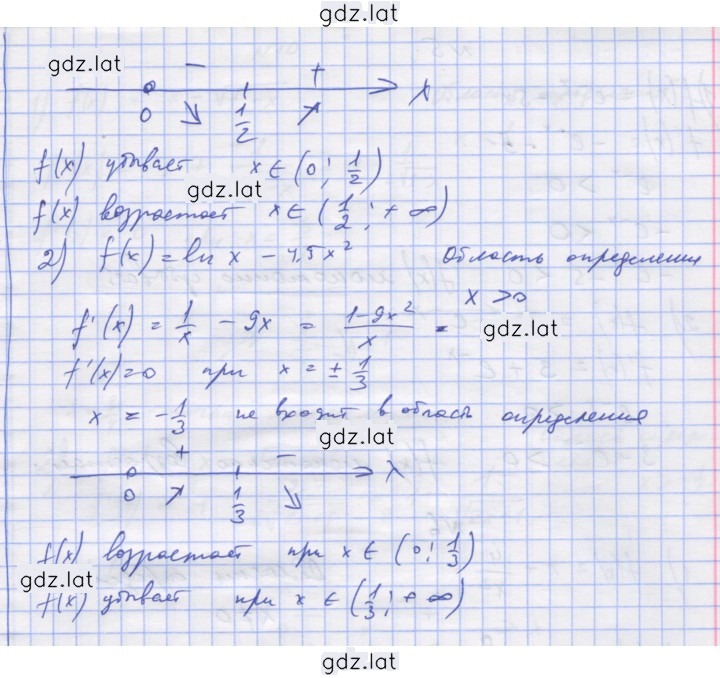 gdz.lat
gdz.lat
− +
0 ↘ 1/2 ↗ x
f(x) убывает x ∈ (0; 1/2)
gdz.lat
f(x) возрастает x ∈ (1/2; +∞)
2) f(x) = ln x − 4,5x² Область определения
x > 0
f'(x) = 1/x − 9x = (1−9x²)/x =
gdz.lat
f'(x)=0 при x = ± 1/3
x = −1/3 не входит в область определения
gdz.lat
+ −
0 ↗ 1/3 ↘ x
f(x) возрастает при x ∈ (0; 1/3)
gdz.lat
f(x) убывает при x ∈ (1/3; +∞)
gdz.lat